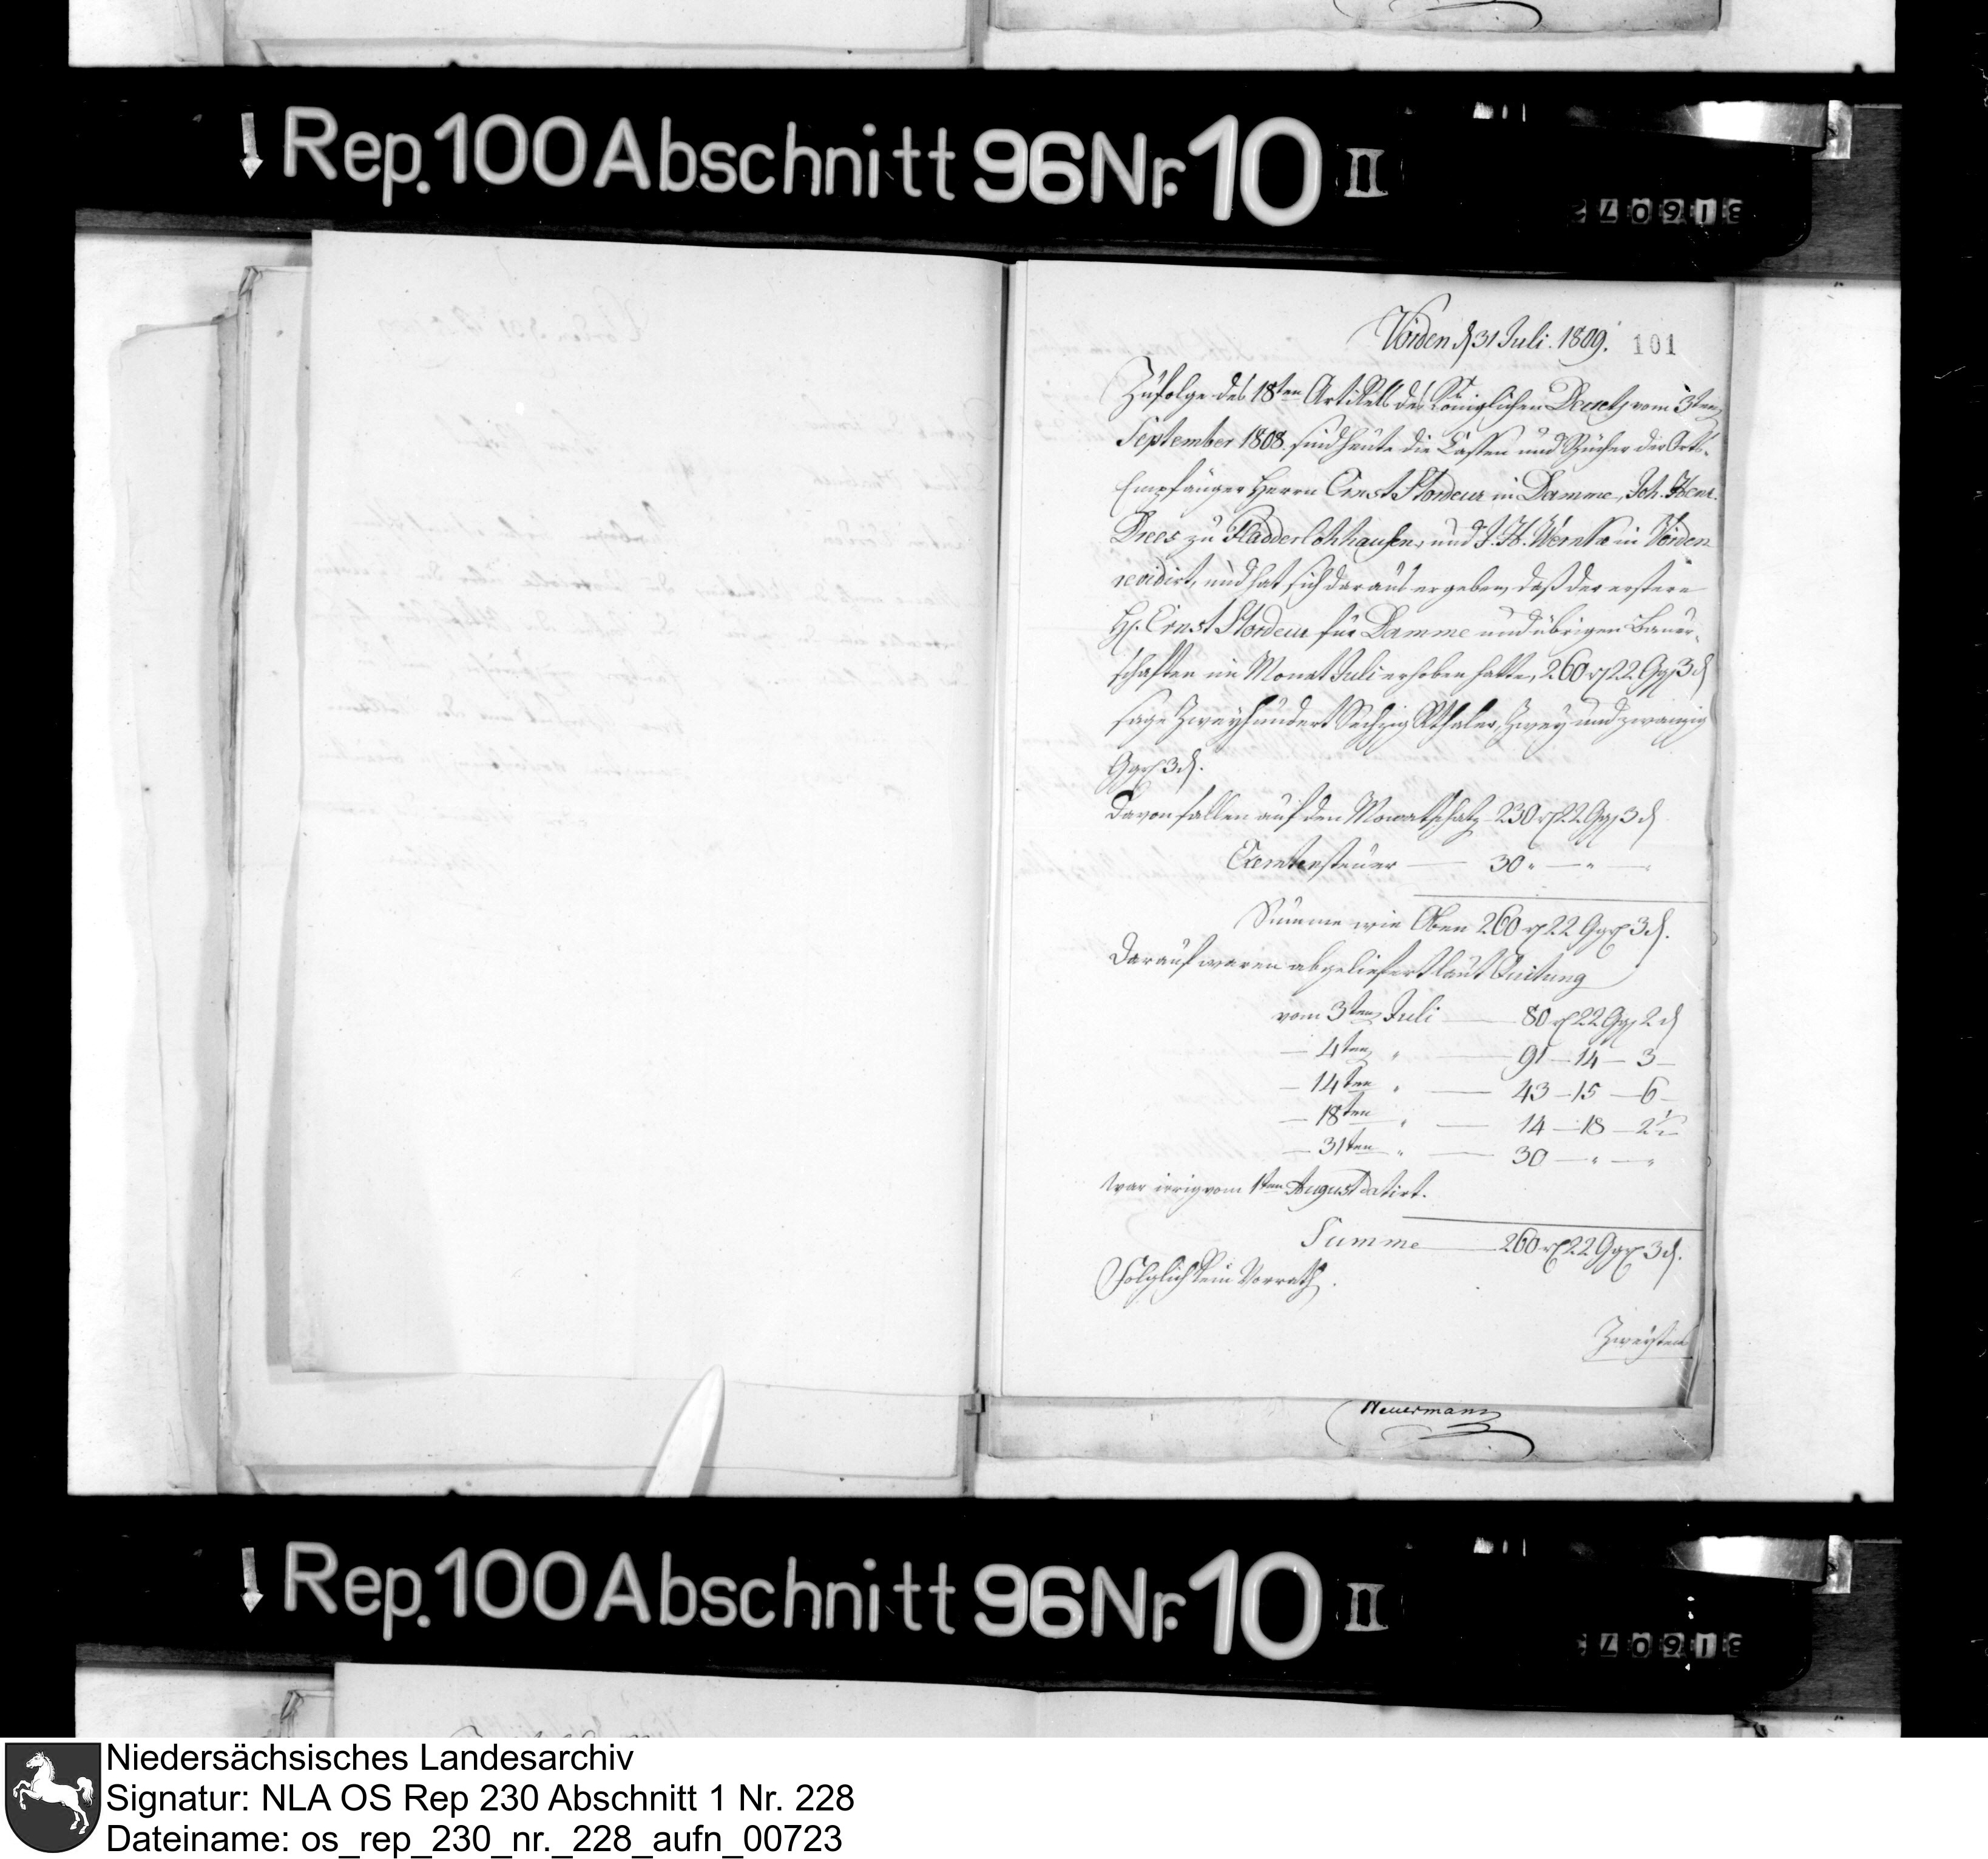 Rep. 100 Abschnitt 96 Nr. 10 II
Vörden d 31 Juli. 1809. 101
Zufolge des 18ten Artikels des Königlichen Decrets vom 3ten
September 1808. sind heute die Cassen und Bücher der Orts-
Empfänger Herrn Ernst Stordeur in Damme, Joh. Henr.
Drees zu Fladderlohhausen, und J. H. Wernke in Vörden
revidirt, und hat sich daraus ergeben, daß der erstere
H. Ernst Stordeur für Damme und übrigen Bauer-
schaften im Monat Juli erhoben hatte, 260 rt 22 Ggr 3 d
sage Zweyhundert Sechzig Rthaler, Zwey und zwanzig
Ggr 3 d.
Davon fallen auf den Monatschatz 230 rt 22 Ggr 3 d
Exemtensteuer — 30 " — " —
Summe wie Oben 260 rt 22 Ggr 3 d.
Darauf waren abgeliefert laut Quitung
vom 3ten Juli — 80 rt 22 Ggr 2 d
— 4ten " — 91 — 14 — 3 —
— 14ten " — 43 — 15 — 6 —
— 18ten " — 14 — 18 —
— 31ten " — 30 — " — "
war irrig vom 1ten August datirt.
Summe — 260 rt 22 Ggr 3 d.
Folglich kein Vorrath.
Zweytens
Meuermann
Rep. 100 Abschnitt 96 Nr. 10 II
Niedersächsisches Landesarchiv
Signatur: NLA OS Rep 230 Abschnitt 1 Nr. 228
Dateiname: os_rep_230_nr._228_aufn_00723